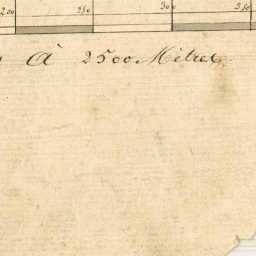 200 250 300 350
à 2500 Mètres